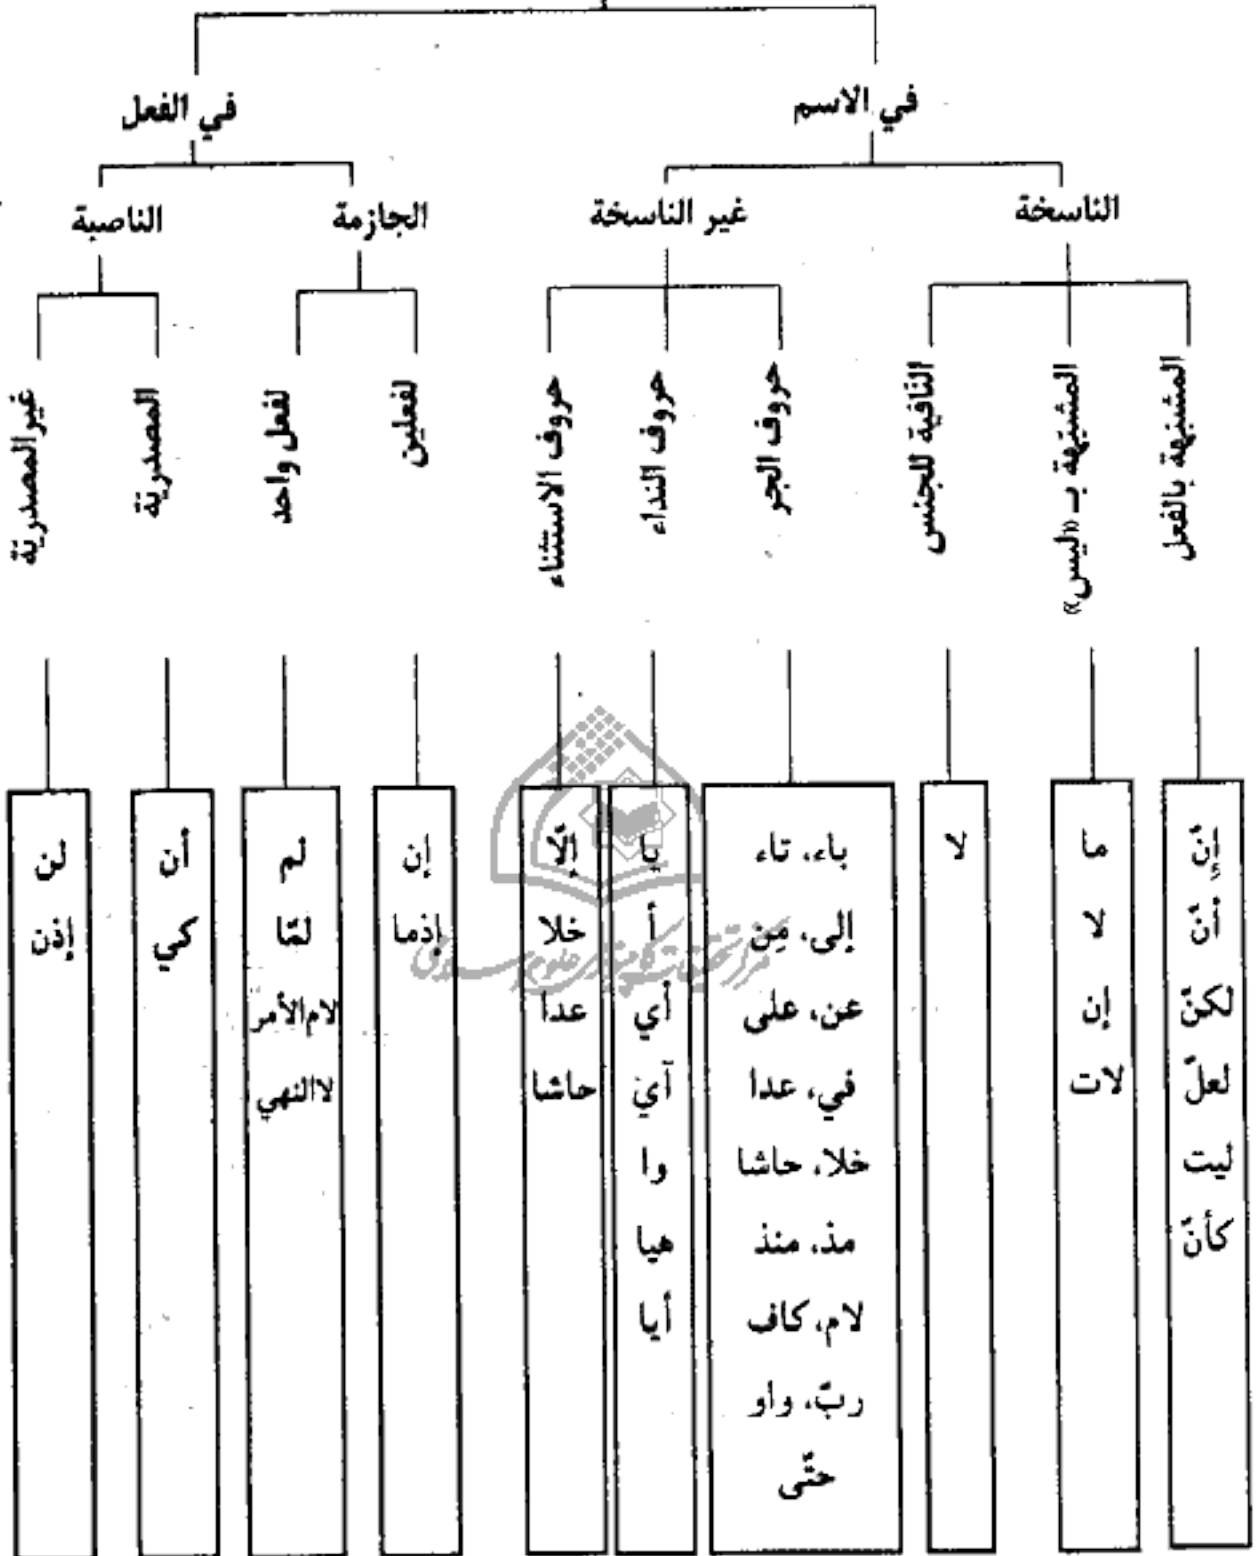 في الاسم
في الفعل
الناسخة
غير الناسخة
الجازمة
الناصبة
المشبهة بالفعل
المشبهة بـ «ليس»
النافية للجنس
حروف الجر
حروف النداء
حروف الاستثناء
لفعلين
لفعل واحد
المصدرية
غير المصدرية
إنّ
أنّ
لكنّ
لعلّ
ليت
كأنّ
ما
لا
إن
لات
لا
باء، تاء
إلى، مِن
عن، على
في، عدا
خلا، حاشا
مذ، منذ
لام، كاف
ربّ، واو
حتّى
يا
أ
أي
آي
وا
هيا
أيا
إلّا
خلا
عدا
حاشا
إن
إذما
لم
لمّا
لام الأمر
لا النهي
أن
كي
لن
إذن